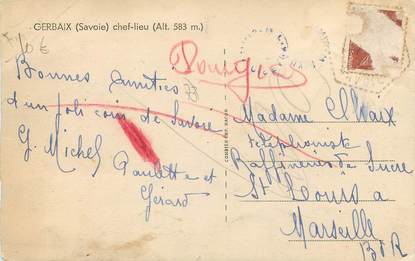 GERBAIX (Savoie) chef-lieu (Alt. 583 m.)
10 €
73
Bonnes amitiés
d'un joli coin de Savoie
G. Michel Paulette et
Gérard
Madame
Téléphoniste
Raffineries de Sucre
St Louis à
Marseille
B d R